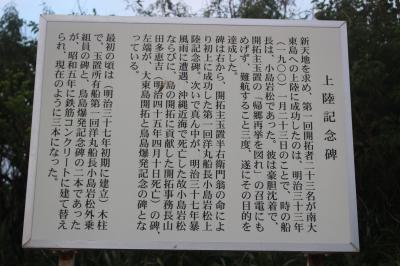 上陸記念碑
新天地を求め、第一回開拓者二十三名が南大
東島への上陸に成功したのは、明治三十三年
(一九〇〇)一月二十三日のことで、時の船
長は、小島岩松であった。彼は豪胆沈着で、
開拓主玉置の「帰郷再挙を図れ」の召電にも
めげず、難航すること三度、遂にその目的を
達成した。
碑は右から、開拓主玉置半右衛門翁の命によ
り初上に成功した第一回洋丸船長小島岩松上
陸記念碑、次いで真ん中が、明治三十七年暴
風雨に遭遇、沖縄近海で死亡した故小島岩松
ならびに、島の開拓に貢献した開拓事務長山
田多恵吉(明治四十五年四月十日死亡)の碑、
左端が、大東島開拓と鳥島爆発記念の碑とな
っている。
最初の頃は(明治三十七年初期に建立)木柱
で、玉置所有船第一回洋丸船長小島岩松外乗
組員の碑と、鳥島爆発記念碑の二本であった
が、昭和五年に鉄筋コンクリートに建て替え
られ、現在のように三本になった。